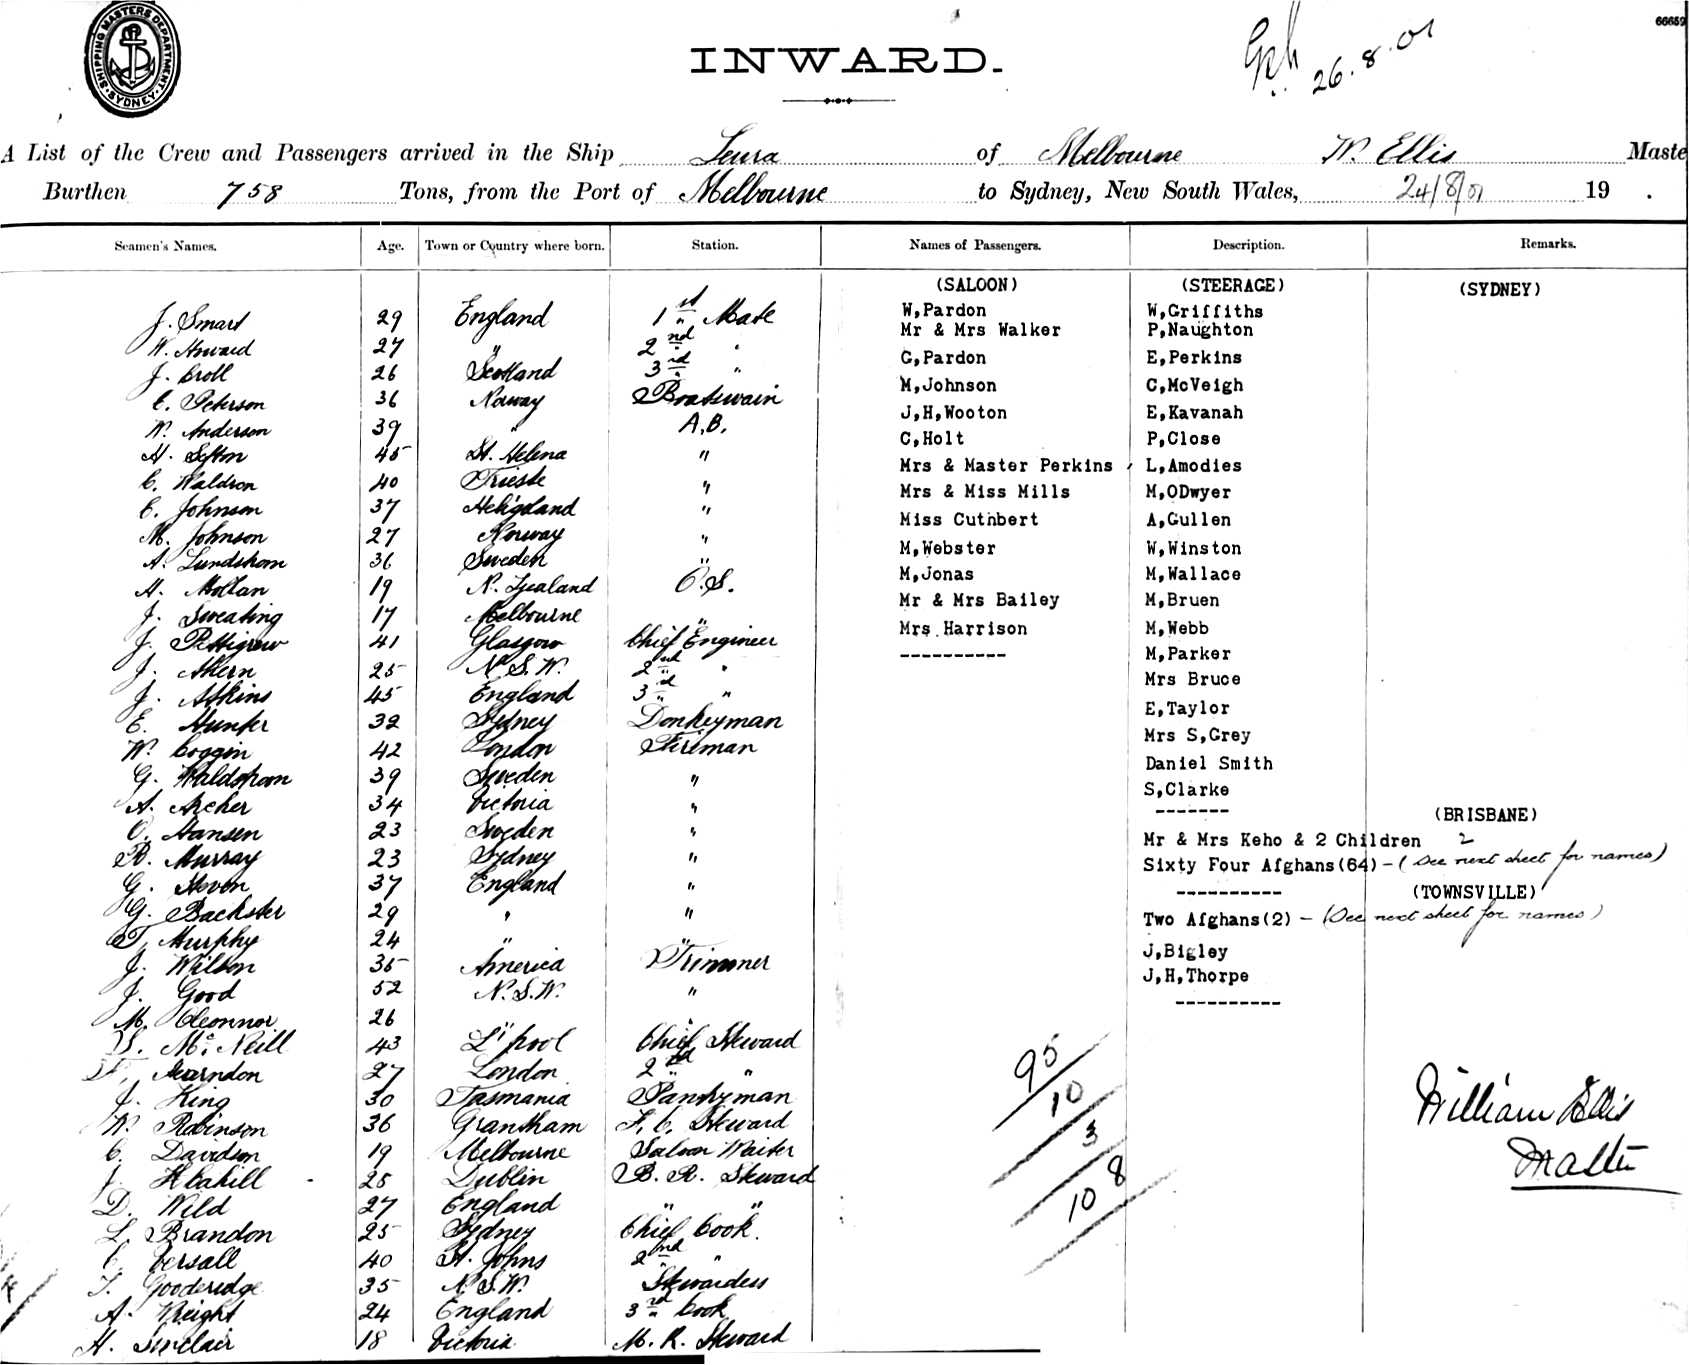 SHIPPING MASTERS DEPARTMENT
SYDNEY
66659
INWARD.
26.8.01
A List of the Crew and Passengers arrived in the Ship Leura of Melbourne W. Ellis Maste
Burthen 758 Tons, from the Port of Melbourne to Sydney, New South Wales, 24/8/01 19 .
Seamen's Names. Age. Town or Country where born. Station. Names of Passengers. Description. Remarks.
J. Smart 29 England 1st Mate
W. Howard 27 " 2nd "
J. Croll 26 Scotland 3rd "
C. Peterson 36 Norway Boatswain
W. Anderson 39 " A.B.
H. Sefton 45 St. Helena "
C. Waldron 40 Trieste "
C. Johnson 37 Heligoland "
M. Johnson 27 Norway "
A. Lundshom 36 Sweden "
H. Mollan 19 N. Zealand O.S.
J. Sweating 17 Melbourne "
J. Pettigrew 41 Glasgow Chief Engineer
J. Ahern 25 N.S.W. 2nd "
J. Atkins 45 England 3rd "
E. Hunter 32 Sydney Donkeyman
W. Coggin 42 London Fireman
G. Waldshom 39 Sweden "
A. Archer 34 Victoria "
O. Hansen 23 Sweden "
R. Murray 23 Sydney "
G. Hoven 37 England "
G. Backster 29 " "
T. Murphy 24 " "
J. Wilson 35 America Trimmer
J. Good 52 N.S.W. "
M. OConnor 26 " "
S. McNeill 43 L'pool Chief Steward
Hearndon 27 London 2nd "
J. King 30 Tasmania Pantryman
W. Robinson 36 Grantham F.C. Steward
C. Davidson 19 Melbourne Saloon Waiter
J. Hcahill 25 Dublin B.R. Steward
D. Wild 27 England " "
L. Brandon 25 Sydney Chief Cook.
C. Versall 40 St. Johns 2nd "
T. Gooderidge 35 N.S.W. Stewardess
A. Wright 24 England 3rd Cook
H. Sinclair 18 Victoria M.R. Steward
(SALOON)
W,Pardon
Mr & Mrs Walker
C,Pardon
M,Johnson
J,H,Wooton
C,Holt
Mrs & Master Perkins
Mrs & Miss Mills
Miss Cuthbert
M,Webster
M,Jonas
Mr & Mrs Bailey
Mrs Harrison
----------
(STEERAGE)
W,Griffiths
P,Naughton
E,Perkins
C,McVeigh
E,Kavanah
P,Close
L,Amodies
M,ODwyer
A,Gullen
W,Winston
M,Wallace
M,Bruen
M,Webb
M,Parker
Mrs Bruce
E,Taylor
Mrs S,Grey
Daniel Smith
S,Clarke
-------
Mr & Mrs Keho & 2 Children 2
Sixty Four Afghans(64) - (See next sheet for names)
----------
Two Afghans(2) - (See next sheet for names)
J,Bigley
J,H,Thorpe
----------
(SYDNEY)
(BRISBANE)
(TOWNSVILLE)
95
10
3
108
William Ellis
Master